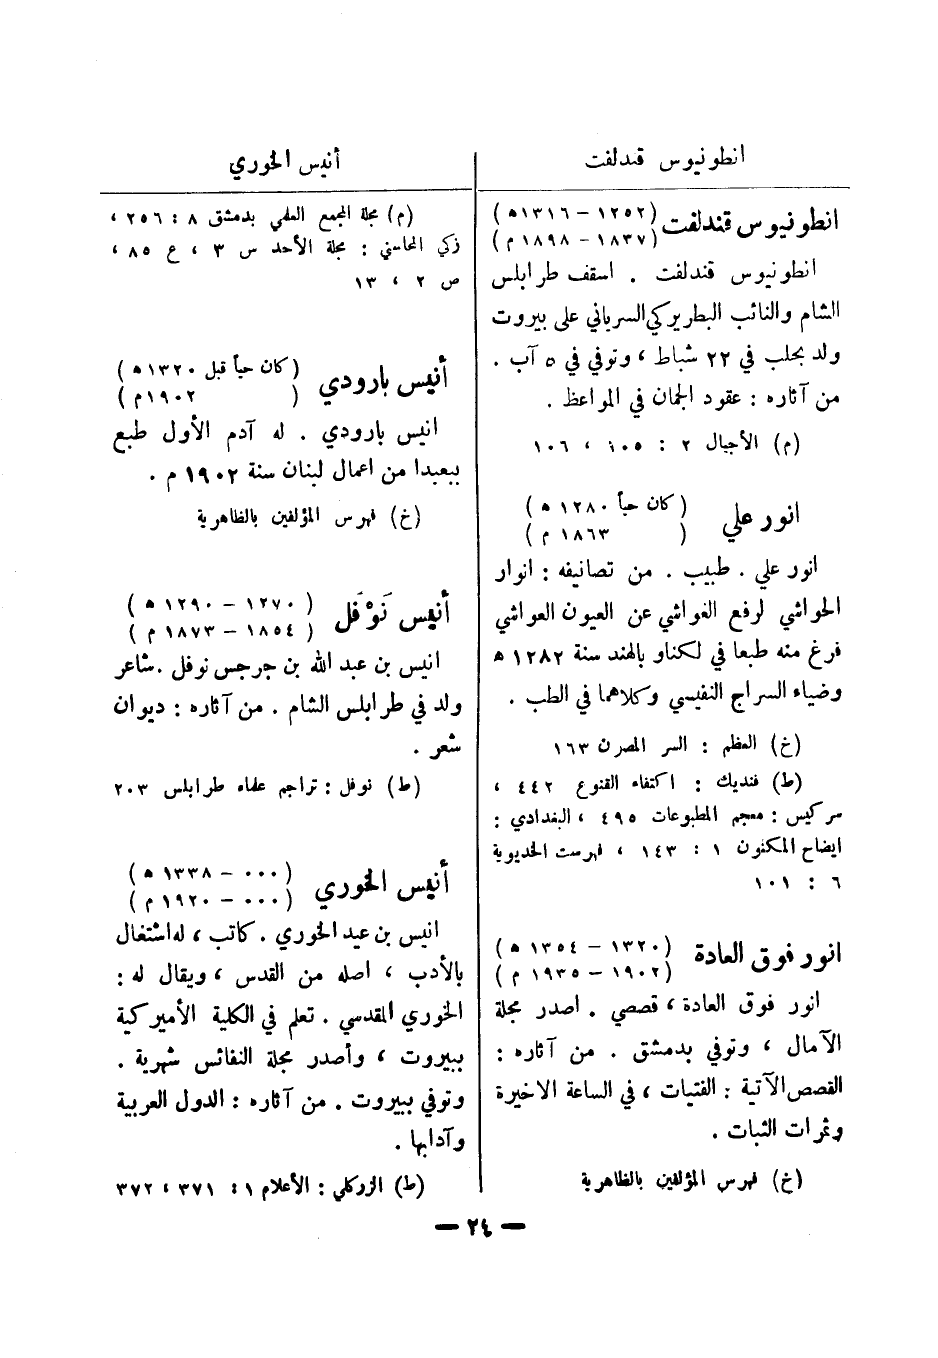 انطونيوس قندلفت
انطونيوس قندلفت (١٢٥٢ – ١٣١٦ ه)
(١٨٣٧ – ١٨٩٨ م)
انطونيوس قندلفت . اسقف طرابلس
الشام والنائب البطريركي السرياني على بيروت
ولد بحلب في ٢٢ شباط ، وتوفي في ٥ آب .
من آثاره : عقود الجمان في المواعظ .
(م) الأجيال ٢ : ١٠٥ ، ١٠٦
انور علي (كان حياً ١٢٨٠ ه)
(١٨٦٣ م)
انور علي . طبيب . من تصانيفه : انوار
الحواشي لرفع الغواشي عن العيون العواشي
فرغ منه طبعا في لكناو بالهند سنة ١٢٨٢ ه
وضياء السراج النفيسي وكلاهما في الطب .
(خ) العظم : السر المصرن ١٦٣
(ط) فنديك : اكتفاء القنوع ٤٤٢ ،
سركيس : معجم المطبوعات ٤٩٥ ، البغدادي :
ايضاح المكنون ١ : ١٤٣ ، فهرست الخديوية
٦ : ١٠١
انور فوق العادة (١٣٢٠ – ١٣٥٤ ه)
(١٩٠٢ – ١٩٣٥ م)
انور فوق العادة ، قصصي . اصدر مجلة
الآمال ، وتوفي بدمشق . من آثاره :
القصص الآتية : الفتيات ، في الساعة الاخيرة
وثمرات الثبات .
(خ) فهرس المؤلفين بالظاهرية
أنيس الخوري
(م) مجلة المجمع العلمي بدمشق ٨ : ٢٥٦ ،
زكي المحاسني : مجلة الأحد س ٣ ، ع ٨٥ ،
ص ٢ ، ١٣
أنيس بارودي (كان حياً قبل ١٣٢٠ ه)
(١٩٠٢ م)
انيس بارودي . له آدم الأول طبع
ببعبدا من اعمال لبنان سنة ١٩٠٢ م .
(خ) فهرس المؤلفين بالظاهرية
أنيس نَوْفَل (١٢٧٠ – ١٢٩٠ ه)
(١٨٥٤ – ١٨٧٣ م)
انيس بن عبد الله بن جرجس نوفل . شاعر
ولد في طرابلس الشام . من آثاره : ديوان
شعر .
(ط) نوفل : تراجم علماء طرابلس ٢٠٣
أنيس الخوري (٠٠٠ – ١٣٣٨ ه)
(٠٠٠ – ١٩٢٠ م)
انيس بن عيد الخوري . كاتب ، له اشتغال
بالأدب ، اصله من القدس ، ويقال له :
الخوري المقدسي . تعلم في الكلية الأميركية
ببيروت ، وأصدر مجلة النفائس شهرية .
وتوفي ببيروت . من آثاره : الدول العربية
وآدابها .
(ط) الزركلي : الأعلام ١ : ٣٧١ ، ٣٧٢
— ٢٤ —